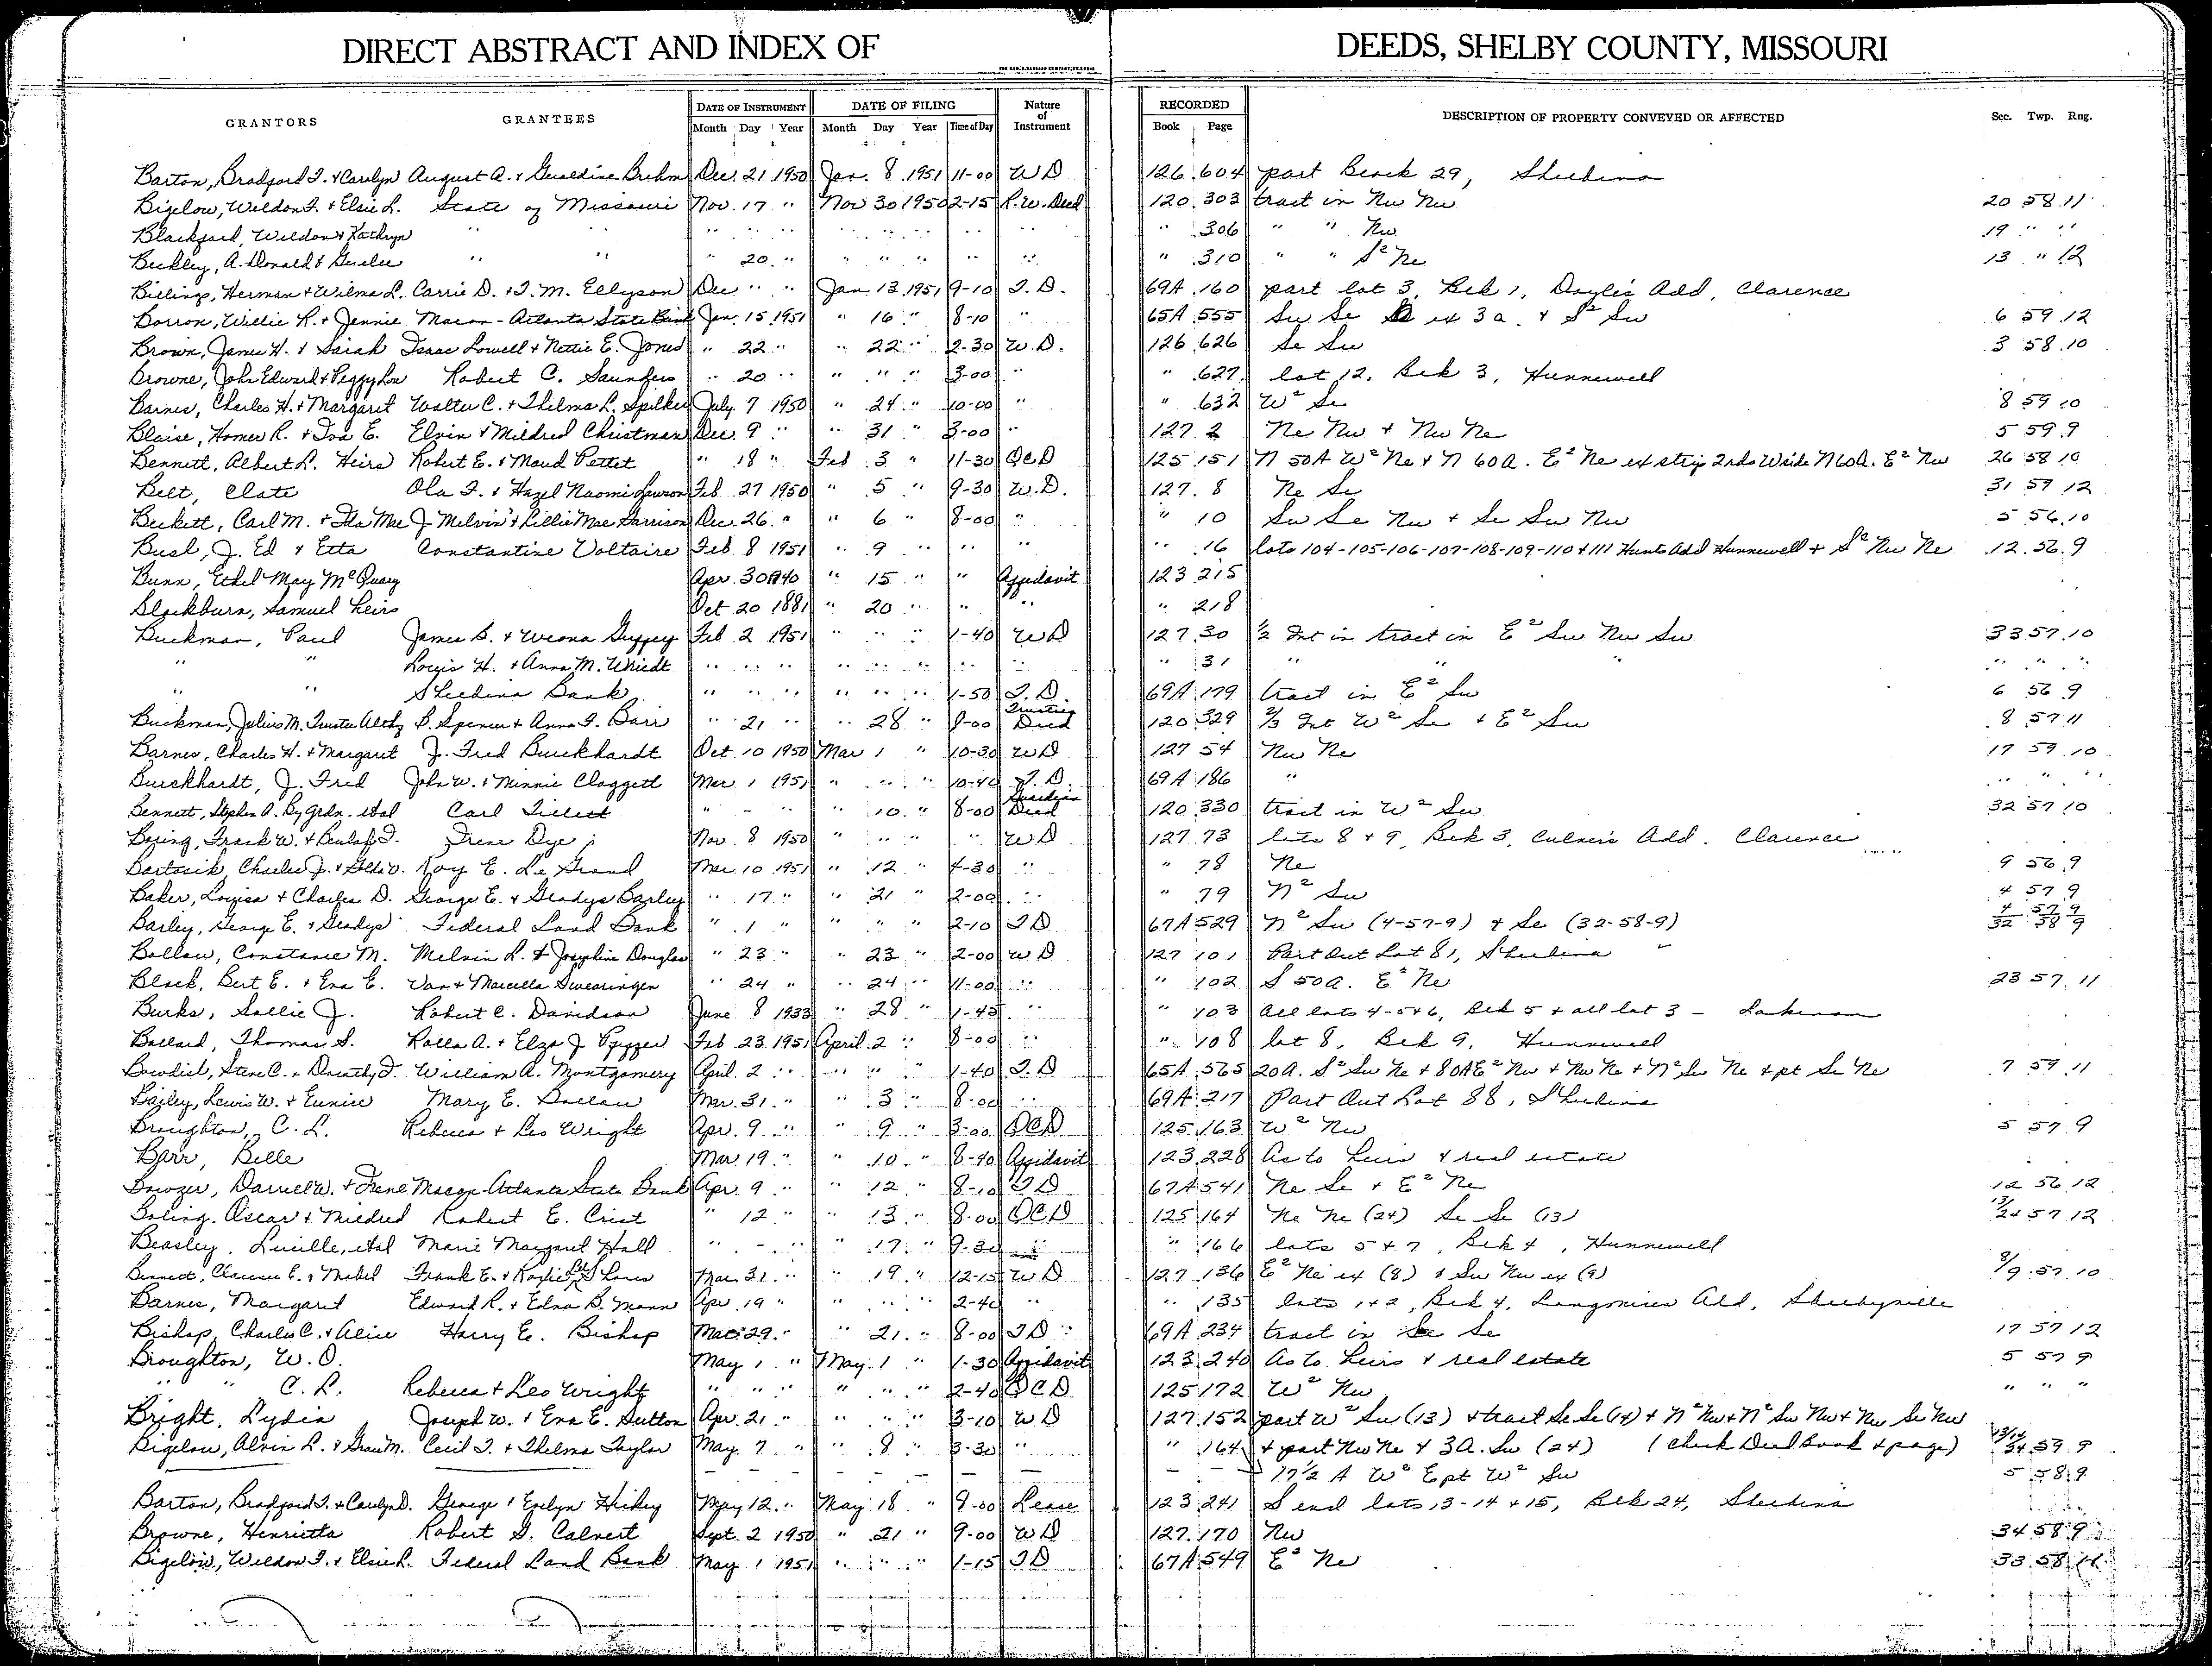 DIRECT ABSTRACT AND INDEX OF DEEDS, SHELBY COUNTY, MISSOURI
GRANTORS GRANTEES DATE OF INSTRUMENT DATE OF FILING Nature of Instrument RECORDED DESCRIPTION OF PROPERTY CONVEYED OR AFFECTED Sec. Twp. Rng.
Month Day Year Month Day Year Time of Day Book Page
Barton, Bradford T. & Carolyn August A. & Geraldine Brehm Dec. 21 1950 Jan. 8 1951 11-00 WD 126 604 part Block 29, Shelbina
Bigelow, Weldon T. & Elsie L. State of Missouri Nov. 17 " Nov 30 1950 2-15 R.W. Deed 120 303 tract in Nw Nw 20 58 11
Blackford, Weldon & Kathryn " " " " " " " " " " " 306 " " Nw 19 " "
Beckley, A. Donald & " " " 20 " " " " " " " 310 " " S² Ne 13 " 12
Billings, Herman & Wilma L. Carrie D. & T. M. Ellyson Dec " " Jan 13 1951 9-10 T.D. 69A 160 part lot 3, Blk 1, Doyle's Add, Clarence
Borron, Willie R. & Jennie Macon-Atlanta State Bank Jan. 15 1951 " 16 " 8-10 " 65A 555 Sw Se ex 3a. & S² Sw 6 59 12
Brown, James H. & Sarah Isaac Lowell & Nettie E. Jones " 22 " " 22 " 2-30 W.D. 126 626 Se Sw 3 58 10
Browne, John Edward & Peggy Lou Robert C. Saunders " 20 " " " " 3-00 " " 627 lot 12, Blk 3, Hunnewell
Barnes, Charles H. & Margaret Walter C. & Thelma L. Spilker July 7 1950 " 24 " 10-00 " " 632 W² Se 8 59 10
Blaise, Homer R. & Iva E. Elvin & Mildred Christman Dec. 9 " " 31 " 3-00 " 127 2 Ne Nw & Nw Ne 5 59 9
Bennett, Albert L. Heirs Robert E. & Maud Pettet " 18 " Feb 3 " 11-30 QCD 125 151 N 50A W² Ne & N 60A. E² Ne ex strip 2rds W side N60A. E² Nw 26 58 10
Belt, Clate Ola F. & Hazel Naomi Lawson Feb 27 1950 " 5 " 9-30 W.D. 127 8 Ne Se 31 59 12
Beckett, Carl M. & Ida Mae J. Melvin & Lillie Mae Garrison Dec. 26 " " 6 " 8-00 " " 10 Sw Se Nw & Se Sw Nw 5 56 10
Bush, J. Ed & Etta Constantine Voltaire Feb 8 1951 " 9 " " " " 16 lots 104-105-106-107-108-109-110 & 111 Hunts Add Hunnewell & S² Nw Ne 12 56 9
Bunn, Ethel May McQuary Apr. 30 1940 " 15 " " Affidavit 123 215
Blackburn, Samuel heirs Oct 20 1881 " 20 " " " " 218
Buckman, Paul James B. & Weona Guffey Feb 2 1951 " " " 1-40 WD 127 30 ½ Int in tract in E² Sw Nw Sw 33 57 10
" " Louis H. & Anna M. Uhriedt " " " " " " " " " 31 " " " " " "
" " Shelbina Bank " " " " " " 1-50 T.D. 69A 179 tract in E² Sw 6 56 9
Buckman, Julius M. Trustee B. Spencer & Anna F. Barr " 21 " " 28 " 8-00 Trustees Deed 120 329 ⅔ Int W² Se & E² Sw 8 57 11
Barnes, Charles H. & Margaret J. Fred Burckhardt Oct 10 1950 Mar 1 " 10-30 WD 127 54 Nw Ne 17 59 10
Burckhardt, J. Fred John W. & Minnie Claggett Mar 1 1951 " " " 10-40 T.D. 69A 186 " " " "
Bennett, Stephen A. By Grdn. etal Carl " - " " 10 " 8-00 Guardian Deed 120 330 tract in W² Sw 32 57 10
Boring, Frank W. & Beulah F. Irene Dye Nov. 8 1950 " " " " WD 127 73 lots 8 & 9, Blk 3, Culvers Add. Clarence
Bartosik, Charles J. & Roy E. Le Grand Mar 10 1951 " 12 " 4-30 " " 78 Ne 9 56 9
Baker, Louisa & Charles D. George E. & Gladys Barley " 17 " " 21 " 2-00 " " 79 N² Sw 4 57 9
Barley, George E. & Gladys Federal Land Bank " 1 " " " " 2-10 TD 67A 529 N² Sw (4-57-9) & Se (32-58-9) 4 57 9 32 58 9
Ballow, Constance M. Melvin L. & Josephine Douglas " 23 " " 23 " 2-00 WD 127 101 Part Out Lot 81, Shelbina
Black, Bert E. & Eva E. Van & Marcella Swearingen " 24 " " 24 " 11-00 " " 102 S 50A. E² Ne 23 57 11
Burks, Sallie J. Robert C. Davidson June 8 1933 " 28 " 1-45 " " 103 all lots 4-5 & 6, Blk 5 & all lot 3 - Lakenan
Ballard, Thomas S. Rolla A. & Elza J. Feb 23 1951 April 2 " 8-00 " " 108 lot 8, Blk 9, Hunnewell
Bowdish, Steve C. & Dorothy F. William A. Montgomery April 2 " " " " 1-40 T.D 65A 565 20A. S² Sw Ne & 80A E² Nw & Nw Ne & N² Sw Ne & pt Se Ne 7 59 11
Bailey, Lewis W. & Eunice Mary E. Mar. 31 " " 3 " 8-00 " 69A 217 Part Out Lot 88, Shelbina
Broughton, C. L. Rebecca & Leo Wright Apr. 9 " " 9 " 3-00 QCD 125 163 W² Nw 5 57 9
Barr, Belle Mar. 19 " " 10 " 8-40 Affidavit 123 228 As to heirs & real estate
Bowzer, Darrell W. & Irene Macon-Atlanta State Bank Apr. 9 " " 12 " 8-10 TD 67A 541 Ne Se & E² Ne 12 56 12
Boling, Oscar & Mildred Robert E. Crist " 12 " " 13 " 8-00 QCD 125 164 Ne Ne (24) Se Se (13) 13/24 57 12
Beasley, Lucille, etal Marie Margaret Hall " - " " 17 " 9-30 " " 166 lots 5 & 7, Blk 4, Hunnewell
Bennett, Clarence E. & Mabel Frank E. & Mar 31 " " 19 " 12-15 WD 127 136 E² Ne ex (8) & Sw Nw ex (9) 8/9 57 10
Barnes, Margaret Edward R. & Edna B. Mann Apr 19 " " " " 2-40 " " 135 lots 1 & 2, Blk 4, Add, Shelbyville
Bishop, Charles C. & Alice Harry E. Bishop Mar 29 " " 21 " 8-00 TD 69A 234 tract in Se Se 17 57 12
Broughton, W. O. May 1 " May 1 " 1-30 Affidavit 123 240 As to heirs & real estate 5 57 9
" " C. L. Rebecca & Leo Wright " " " " " " 2-40 QCD 125 172 W² Nw " " "
Bright, Lydia Joseph W. & Eva E. Sutton Apr. 21 " " " " 3-10 WD 127 152 part W² Sw (13) & tract Se Se (14) & N² Nw & N² Sw Nw & Nw Se Nw
Bigelow, Alvin L. & Grace M. Cecil T. & Thelma Taylor May 7 " " 8 " 3-30 " " 164 & part Nw Ne & 3A. Sw (24) (Check Deed Book & page) 13/14 24 59 9
17½ A W² E pt W² Sw 5 58 9
Barton, Bradford T. & Carolyn D. George & Evelyn Hickey May 12 " May 18 " 9-00 Lease 123 241 S end lots 13-14 & 15, Blk 24, Shelbina
Browne, Henrietta Robert G. Calvert Sept. 2 1950 " 21 " 9-00 WD 127 170 Nw 34 58 9
Bigelow, Weldon T. & Elsie L. Federal Land Bank May 1 1951 " " " 1-15 TD 67A 549 E² Ne 33 58 11